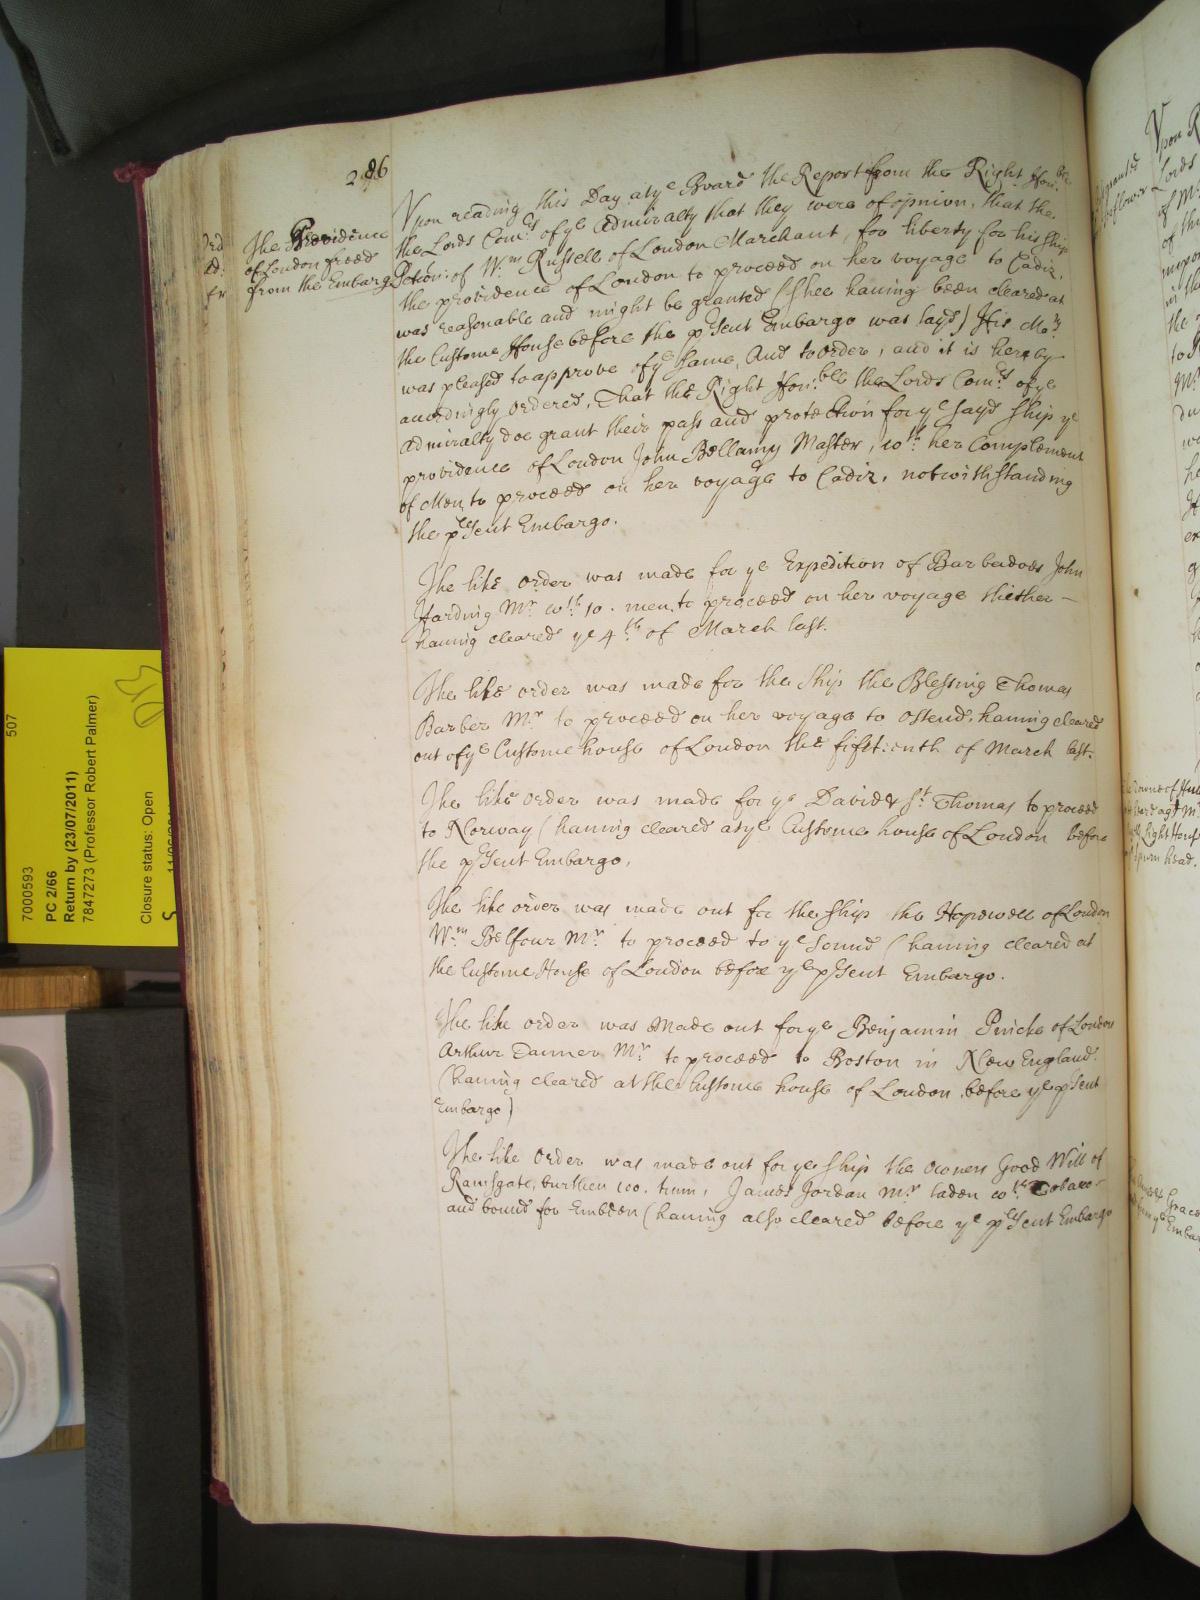 286
The Providence
of London freed
from the Embargo
Vpon reading this Day at ye Board the Report from the Right Honble
the Lords Comrs of ye Admiralty that they were of opinion, that the
Petcon: of Wm Russell of London Marchant, for liberty for his ship
the providence of London to proceed on her voyage to Cadiz,
was reasonable and might be granted (Shee hauing been cleared at
the Custome House before the psent Embargo was layd) His Maty
was pleased to approve of ye same, And to order, and it is hereby
accordingly ordered, That the Right Honble the Lords Comrs of ye
Admiralty doe grant their pass and protection for ye sayd ship ye
providence of London John Bellamy Master, wth her Complement
of Men to proceed on her voyage to Cadiz, notwithstanding
the psent Embargo.
The like order was made for ye Expedition of Barbadoes John
Harding Mr wth 10. men to proceed on her voyage thither —
hauing cleared ye 4th of March last.
The like order was made for the Ship the Blessing Thomas
Barber Mr to proceed on her voyage to Ostend, hauing cleared
out of ye Custome house of London the fifteenth of March last.
The like order was made for ye David & St Thomas to proceed
to Norway (hauing cleared at ye Custome house of London before
the psent Embargo,
The like order was made out for the Ship the Hopewell of London
Wm Belfour Mr to proceed to ye Sound (hauing cleared at
the Custome House of London before ye psent Embargo.
The like order was Made out for ye Benjamin Pincke of London
Arthur Tanner Mr to proceed to Boston in New England.
(hauing cleared at the Custome house of London before ye psent
Embargo)
The like order was made out for ye Ship the Owners Good Will of
Ramsgate, burthen 100. tunn, James Jordan Mr laden wth Tobacco
and bound for Embden (hauing also cleared before ye psent Embargo
507
7000593
PC 2/66
Return by (23/07/2011)
7847273 (Professor Robert Palmer)
Closure status: Open